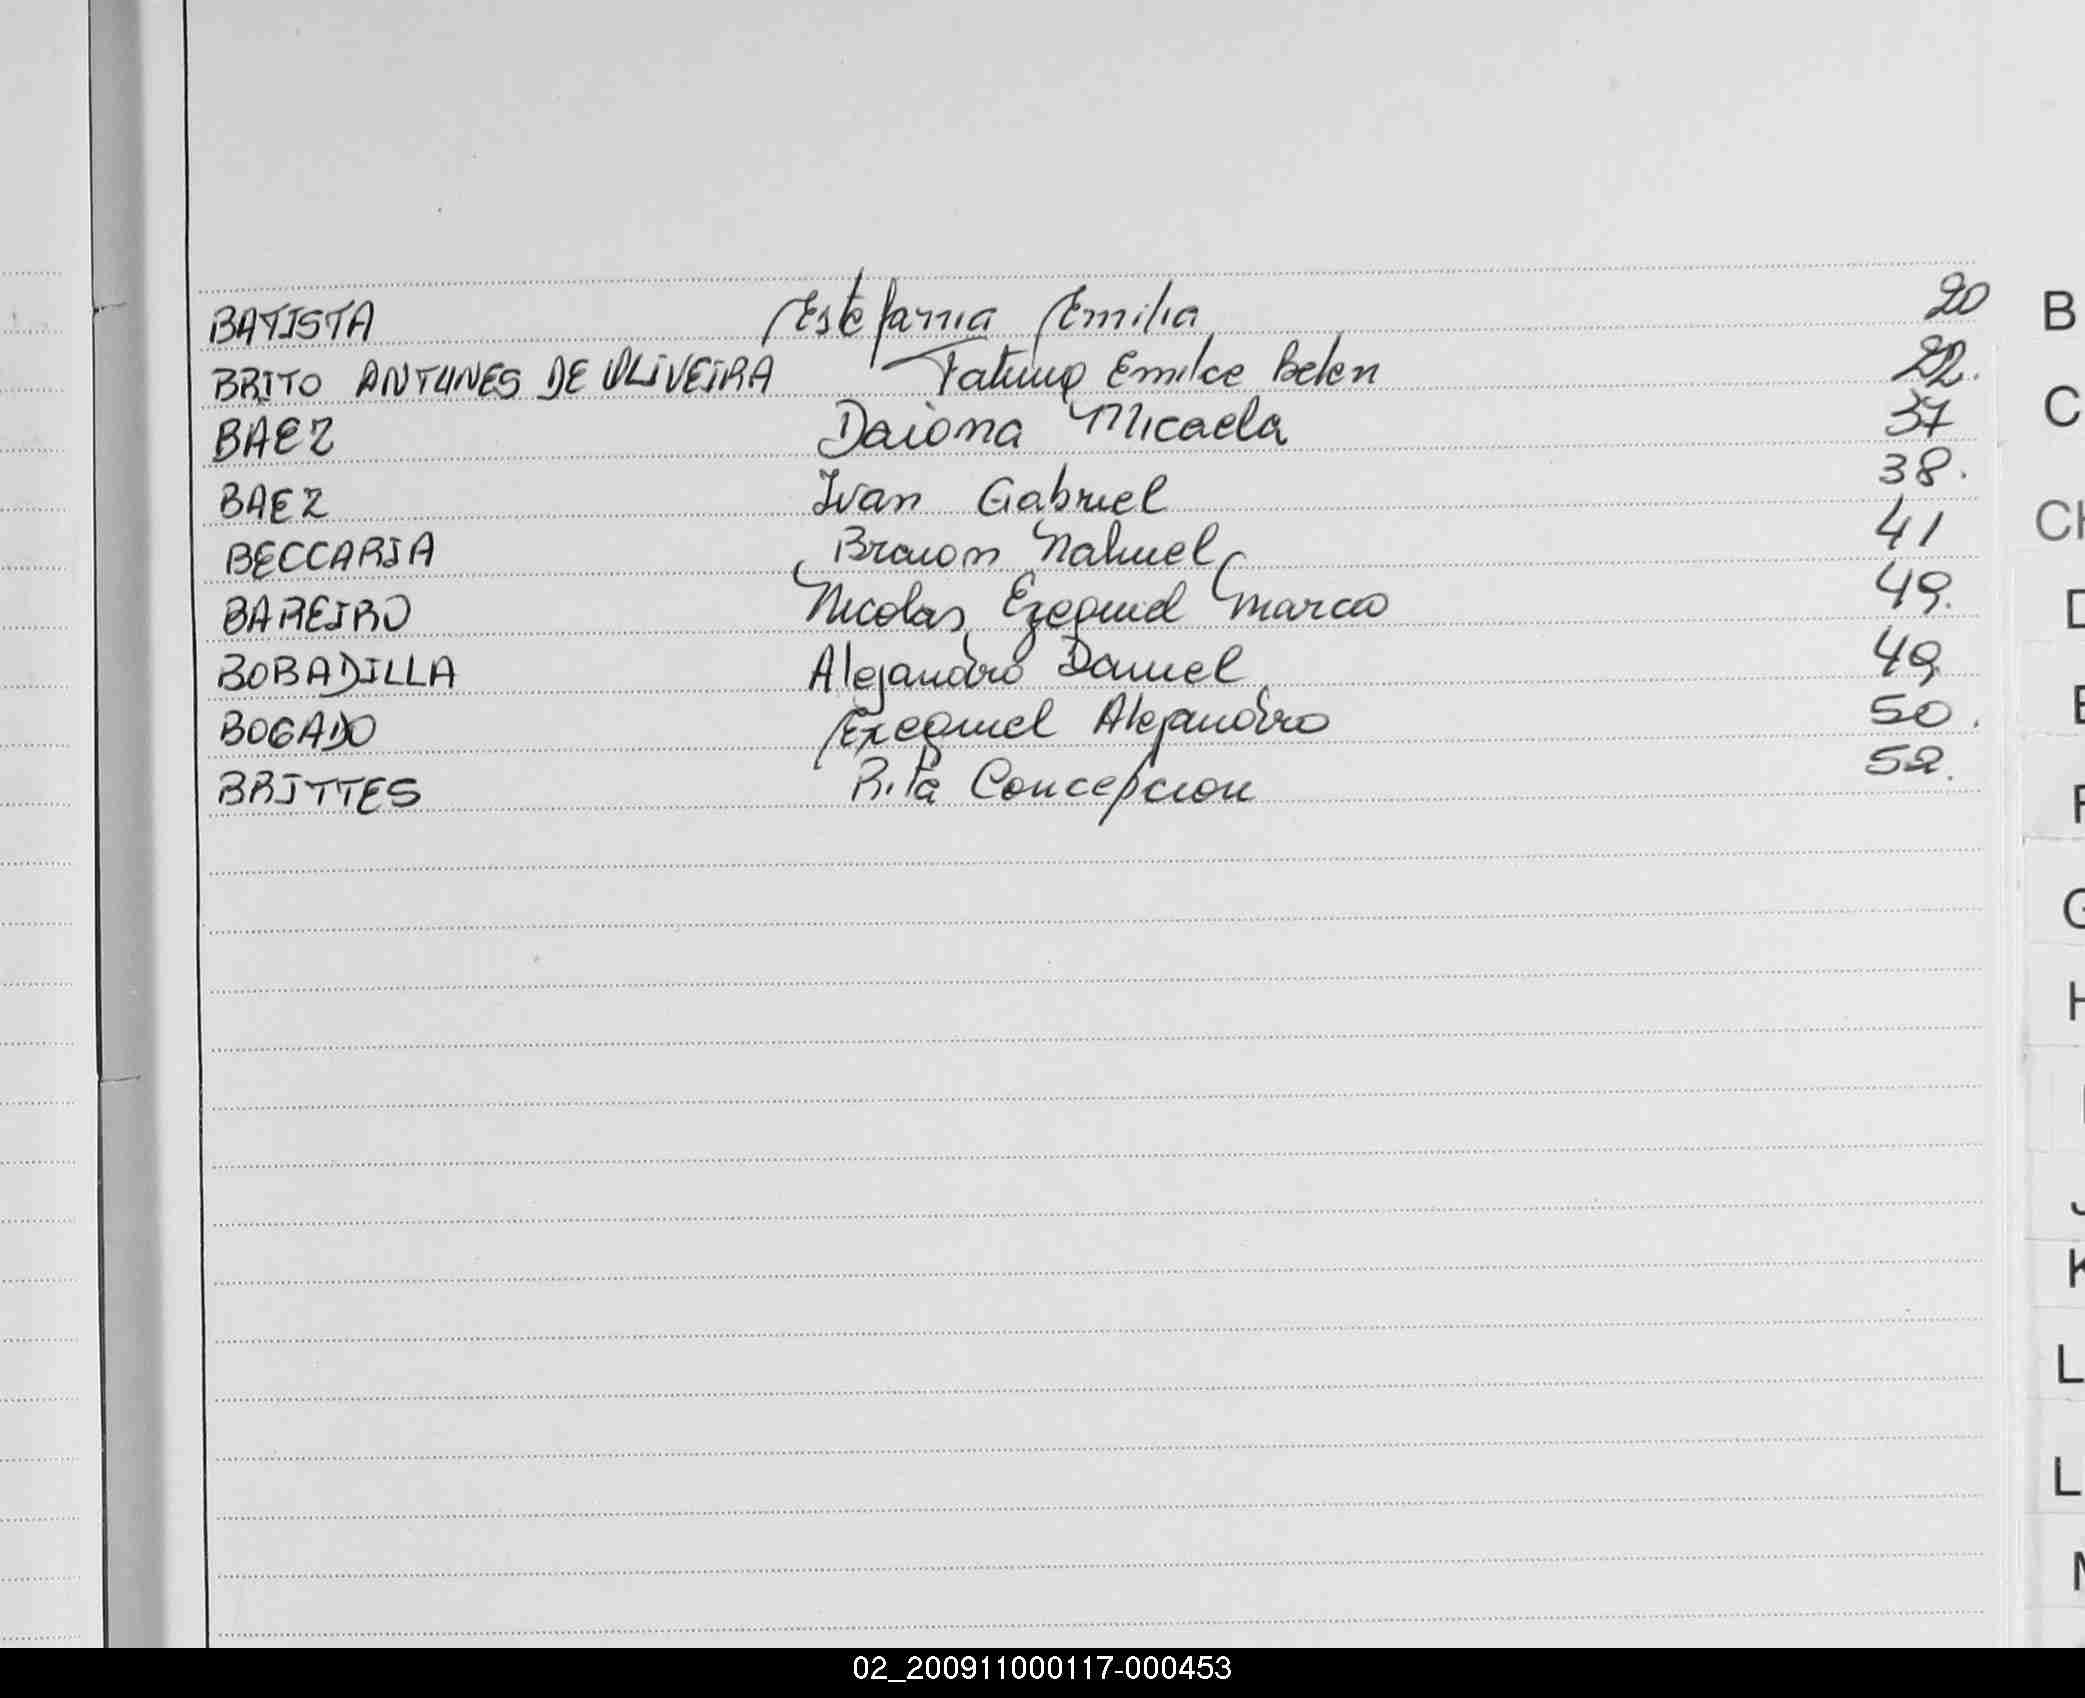 BATISTA Estefania Emilia 20
BRITO ANTUNES DE OLIVEIRA Fatima Emilce Belen 22.
BAEZ Daiana Micaela 37
BAEZ Ivan Gabriel 38.
BECCARIA Braian Nahuel 41
BAREIRO Nicolas Ezequiel Marcio 49.
BOBADILLA Alejandro Daniel 49
BOGADO Exequiel Alejandro 50.
BRITTES Rita Concepcion 52.
B
C
CH
D
E
F
G
H
I
J
K
L
L
M
02_200911000117-000453